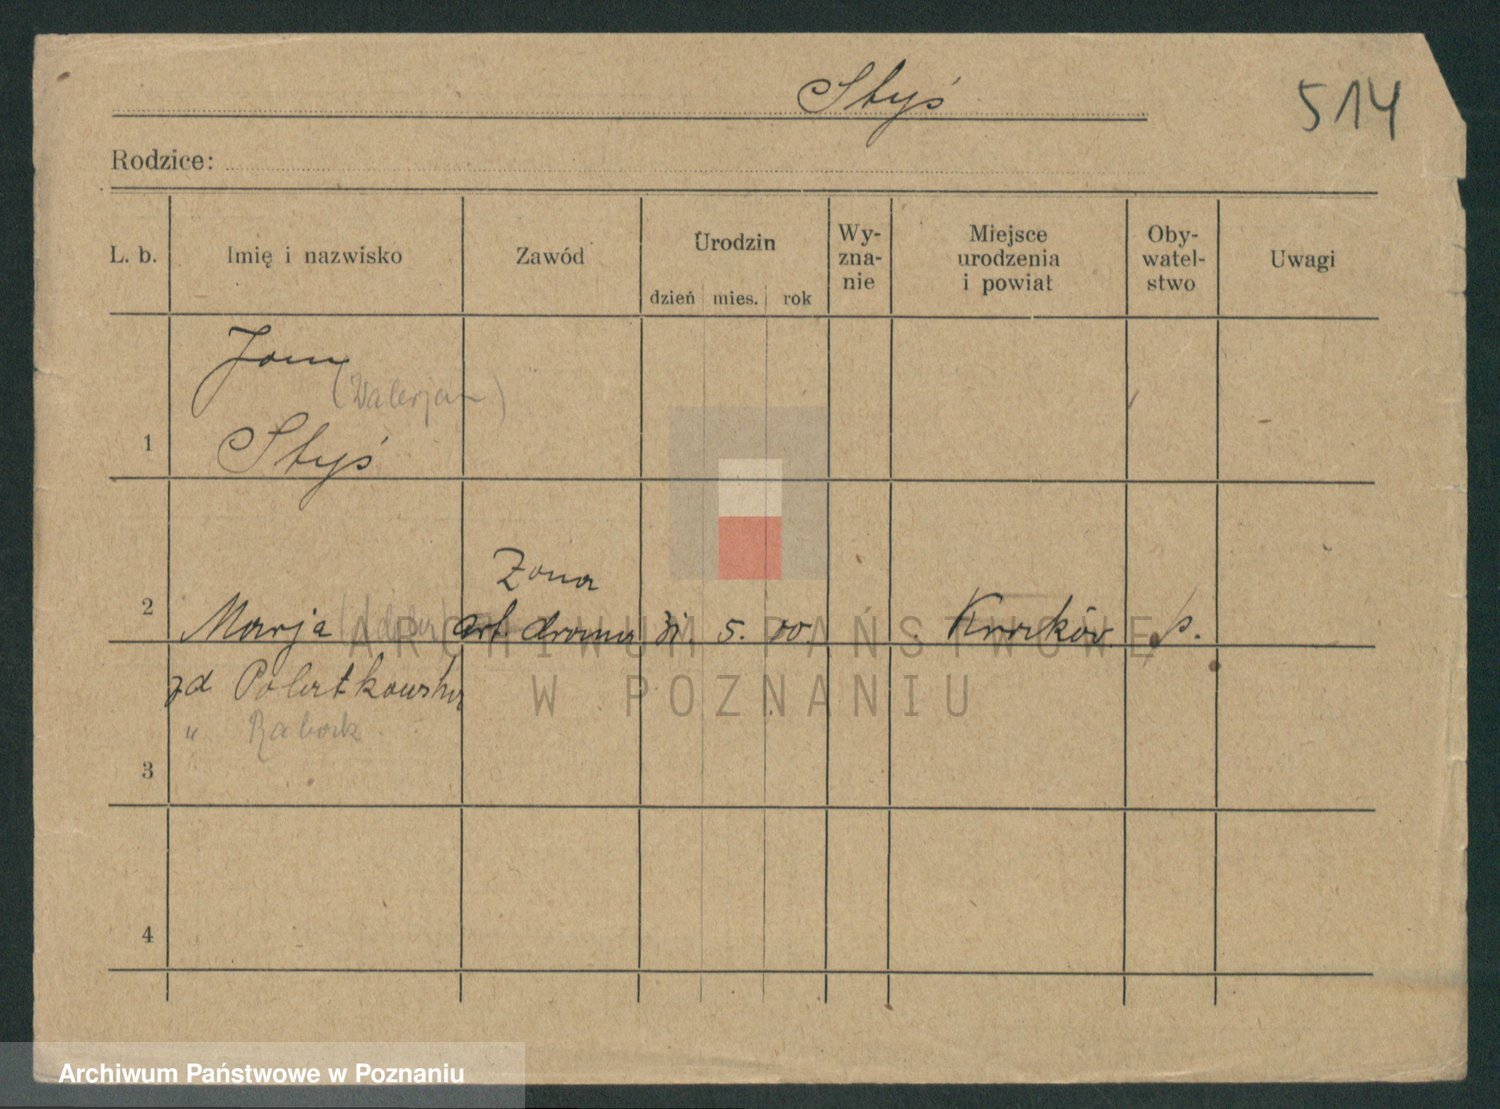 Styś
514
Rodzice:
L. b.
Imię i nazwisko
Zawód
Urodzin
dzień mies. rok
Wy-
zna-
nie
Miejsce
urodzenia
i powiat
Oby-
watel-
stwo
Uwagi
1
Jan
(Walerjan)
Styś
2
Żona
Marja art. drama 31. 5. 00. Kraków p.
zd
" 
3
4
ARCHIWUM PAŃSTWOWE
W POZNANIU
Archiwum Państwowe w Poznaniu